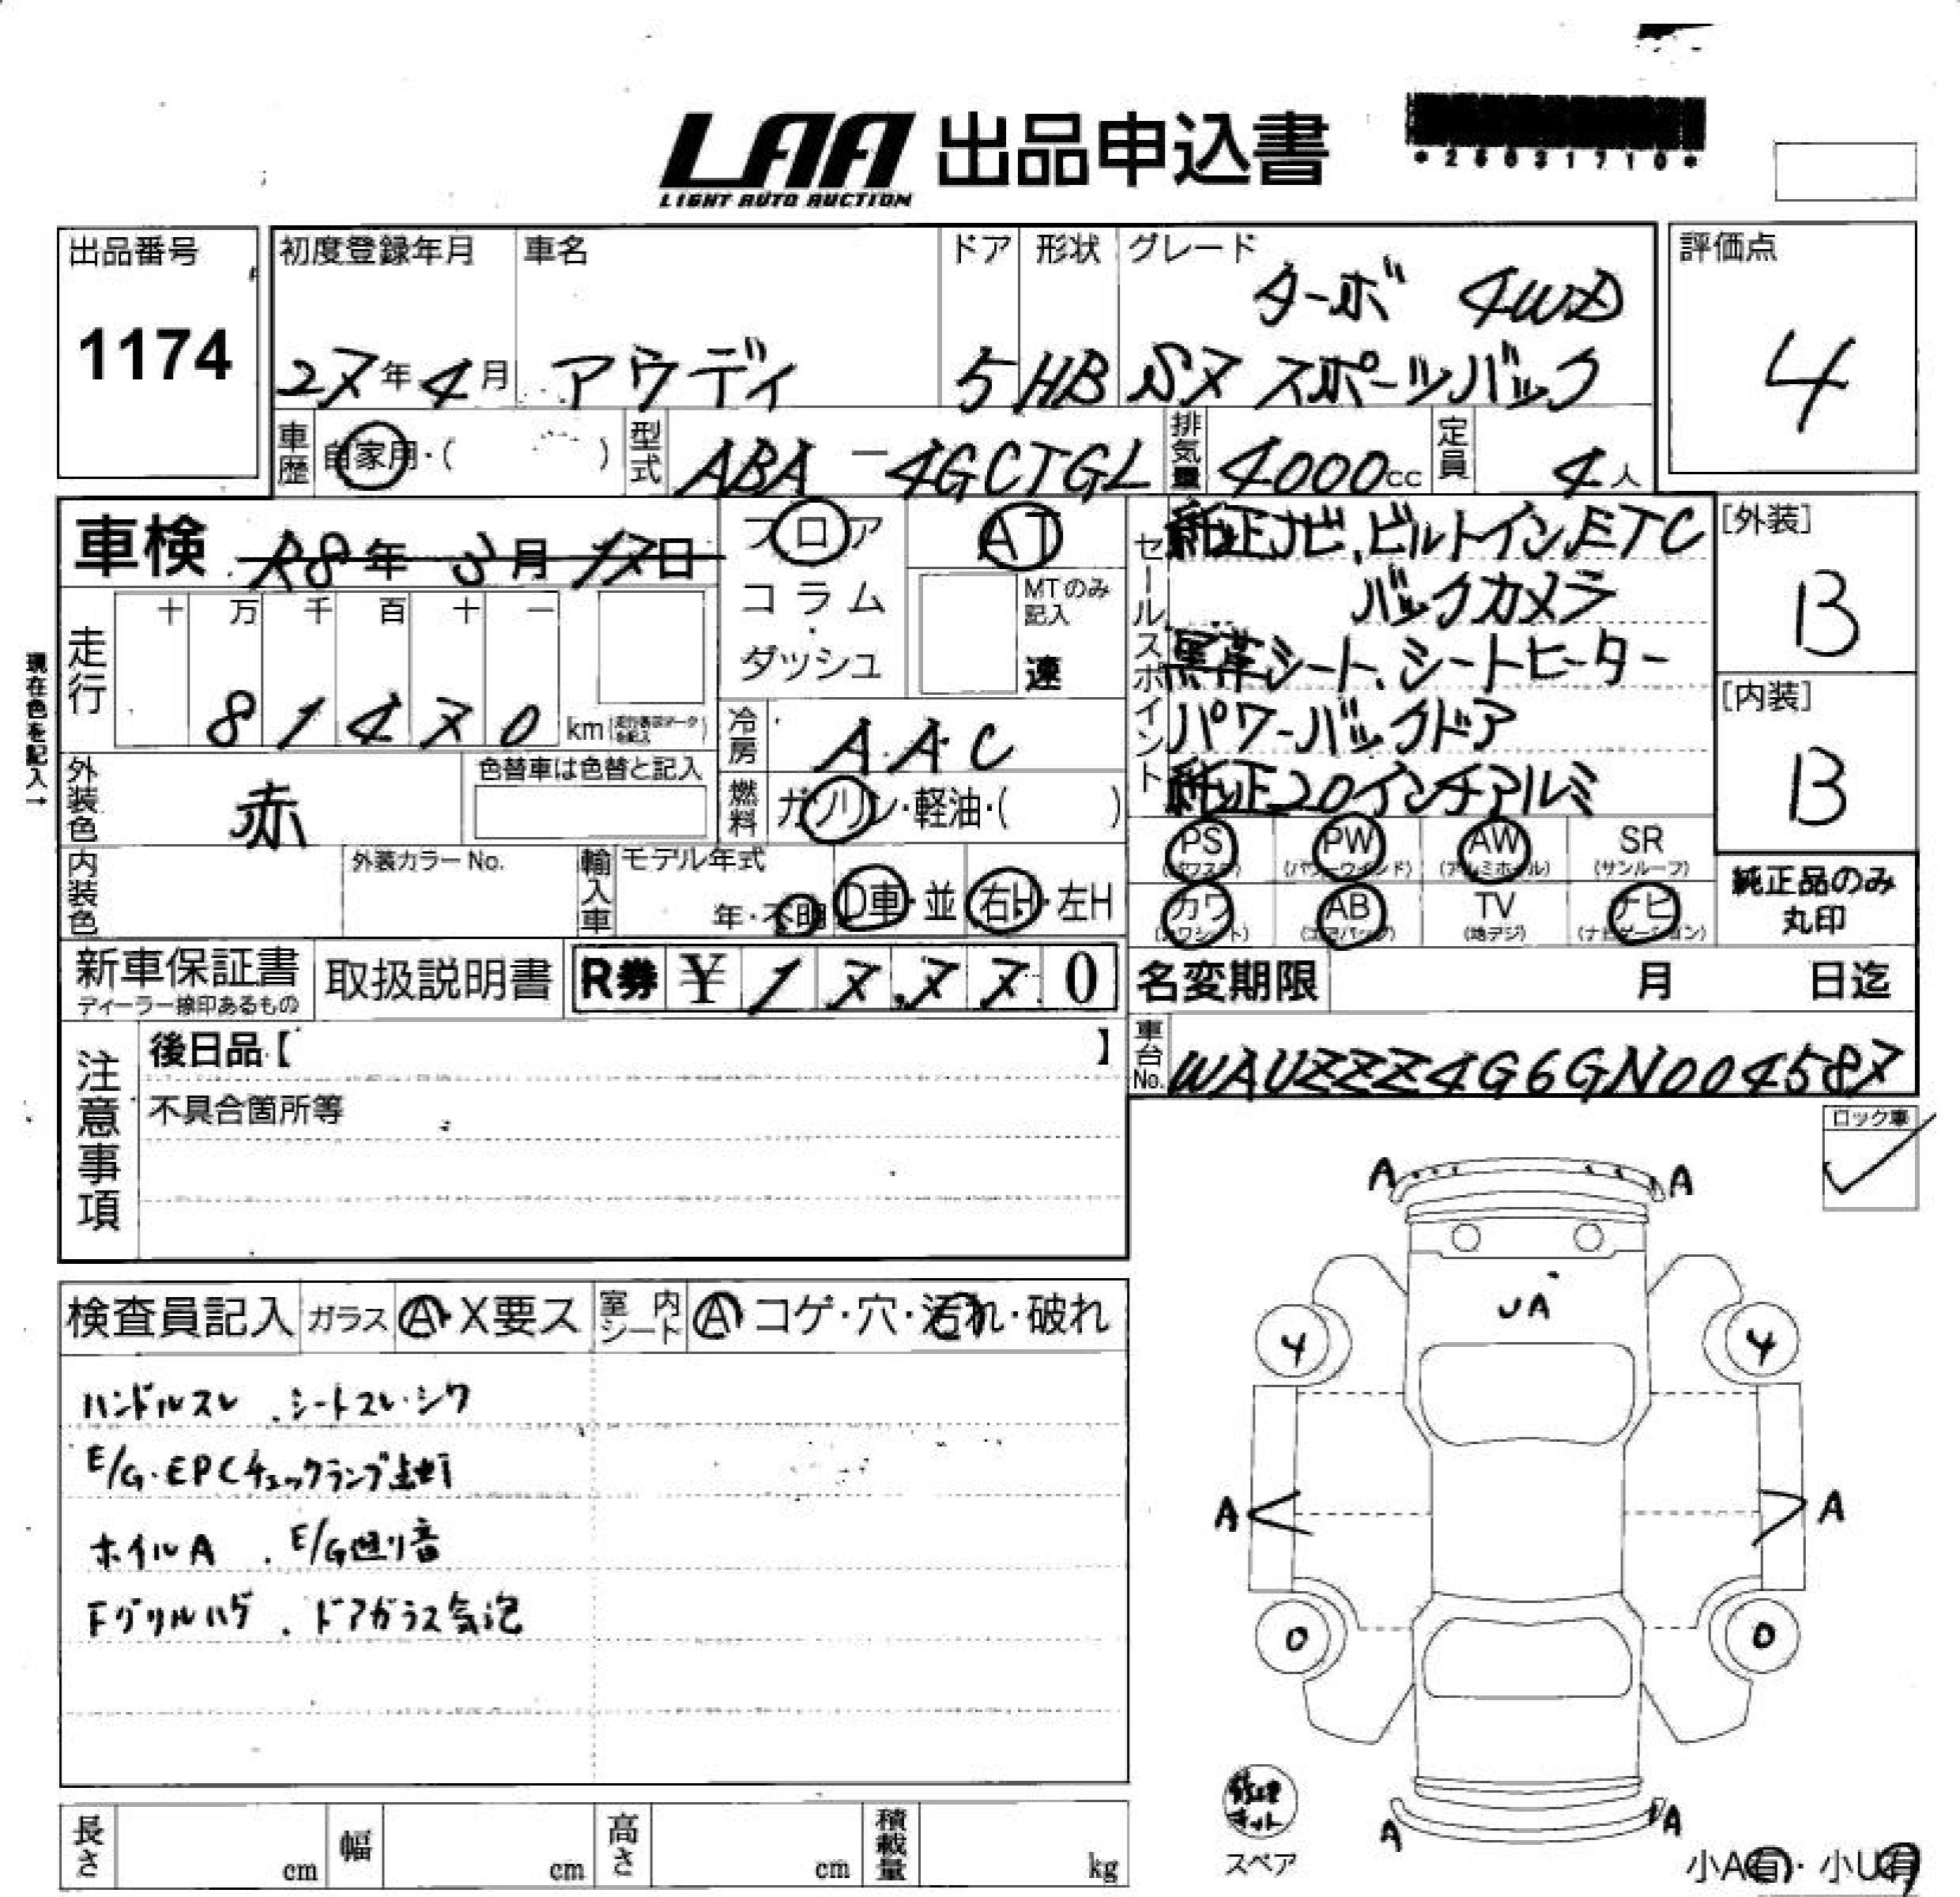 LAA 出品申込書
LIGHT AUTO AUCTION
*28031710*
出品番号
1174
初度登録年月
27年4月
車名
アウディ
ドア
5
形状
HB
グレード
ターボ 4WD
S7 スポーツバック
評価点
4
車歴
自家用・( )
型式
ABA-4GCTGL
排気量
4000cc
定員
4人
車検 R8年3月17日
フロア
コラム
・
ダッシュ
AT
MTのみ
記入
速
セールスポイント
純正ナビ、ビルトインETC
バックカメラ
黒革シート、シートヒーター
パワーバックドア
純正20インチアルミ
[外装]
B
[内装]
B
現在色を記入→
走行
十 万 千 百 十 一
8 1 4 7 0 km
冷房
A.A.C
外装色
赤
色替車は色替と記入
燃料
ガソリン・軽油・( )
内装色
外装カラーNo.
輸入車
モデル年式
年・不明
D車・並
右H・左H
PS
(パワステ)
PW
(パワーウインド)
AW
(アルミホイール)
SR
(サンルーフ)
カワ
(カワシート)
AB
(エアバッグ)
TV
(地デジ)
ナビ
(ナビゲーション)
純正品のみ
丸印
新車保証書
ディーラー捺印あるもの
取扱説明書
R券 ¥ 1 7,7 7 0
名変期限 月 日迄
車台No.
WAUZZZ4G6GN004587
注意事項
後日品【 】
不具合箇所等
ロック車
検査員記入
ガラス
A・X要ス
室内シート
A・コゲ・穴・汚れ・破れ
ハンドルスレ . シートスレ・シワ
E/G・EPCチェックランプ点灯
ホイルA . E/G廻り音
Fグリルハゲ . ドアガラス気泡
A A
UA
4 4
A A
0 0
A A
修理キット
スペア
小A有・小U有
長さ cm
幅 cm
高さ cm
積載量 kg